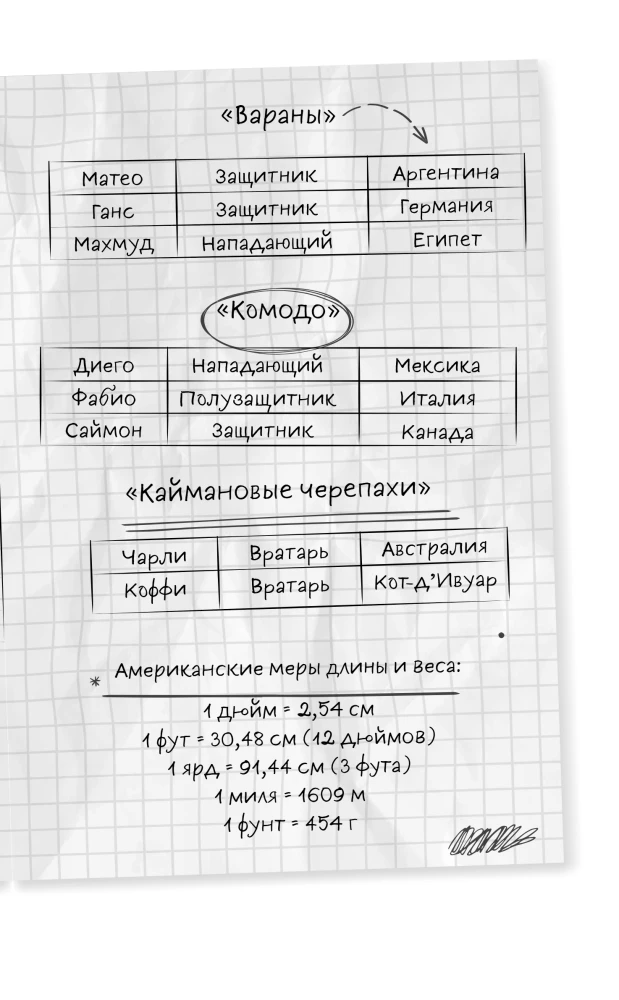 «Вараны»
Матео Защитник Аргентина
Ганс Защитник Германия
Махмуд Нападающий Египет
«Комодо»
Диего Нападающий Мексика
Фабио Полузащитник Италия
Саймон Защитник Канада
«Каймановые черепахи»
Чарли Вратарь Австралия
Коффи Вратарь Кот-д’Ивуар
* Американские меры длины и веса:
1 дюйм = 2,54 см
1 фут = 30,48 см (12 дюймов)
1 ярд = 91,44 см (3 фута)
1 миля = 1609 м
1 фунт = 454 г